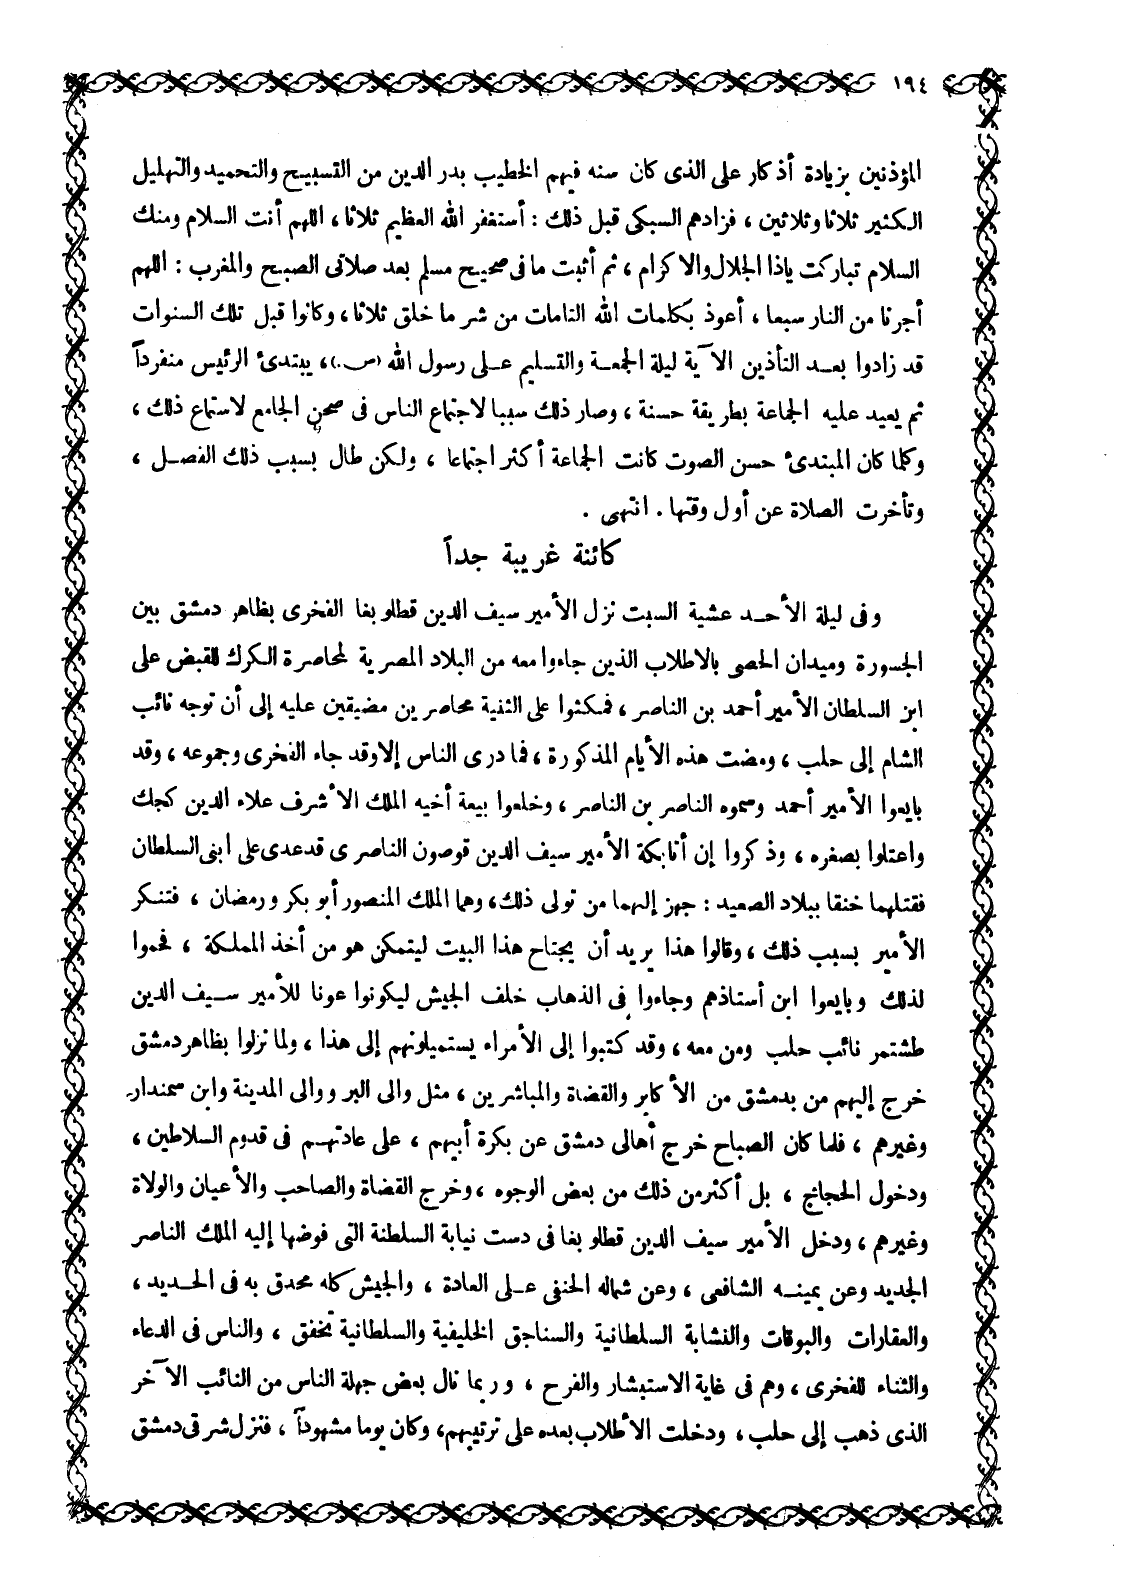 ١٩٤
المؤذنين بزيادة أذكار على الذى كان سنه فيهم الخطيب بدر الدين من التسبيح والتحميد والتهليل
الكثير ثلاثا وثلاثين ، فزادهم السبكى قبل ذلك : أستغفر الله العظيم ثلاثا ، اللهم أنت السلام ومنك
السلام تباركت ياذا الجلال والاكرام ، ثم أثبت ما فى صحيح مسلم بعد صلاتى الصبح والمغرب : اللهم
أجرنا من النار سبعا ، أعوذ بكلمات الله التامات من شر ما خلق ثلاثا ، وكانوا قبل تلك السنوات
قد زادوا بعد التأذين الآية ليلة الجمعة والتسليم على رسول الله (ص.)، يبتدئ الرئيس منفرداً
ثم يعيد عليه الجماعة بطريقة حسنة ، وصار ذلك سببا لاجتماع الناس فى صحن الجامع لاستماع ذلك ،
وكلما كان المبتدئ حسن الصوت كانت الجماعة أكثر اجتماعا ، ولكن طال بسبب ذلك الفصل ،
وتأخرت الصلاة عن أول وقتها . انتهى .
كائنة غريبة جداً
وفى ليلة الأحد عشية السبت نزل الأمير سيف الدين قطلوبغا الفخرى بظاهر دمشق بين
الجسورة وميدان الحصى بالاطلاب الذين جاءوا معه من البلاد المصرية لمحاصرة الكرك للقبض على
ابن السلطان الأمير أحمد بن الناصر ، فمكثوا على الثنية محاصرين مضيقين عليه إلى أن توجه نائب
الشام إلى حلب ، ومضت هذه الأيام المذكورة ، فما درى الناس إلا وقد جاء الفخرى وجموعه ، وقد
بايعوا الأمير أحمد وسموه الناصر بن الناصر ، وخلعوا بيعة أخيه الملك الأشرف علاء الدين كجك
واعتلوا بصغره ، وذكروا إن أتابكة الأمير سيف الدين قوصون الناصرى قد عدى على ابنى السلطان
فقتلهما خنقا ببلاد الصعيد : جهز إليهما من تولى ذلك، وهما الملك المنصور أبو بكر ورمضان ، فتنكر
الأمير بسبب ذلك ، وقالوا هذا يريد أن يجتاح هذا البيت ليتمكن هو من أخذ المملكة ، فحموا
لذلك وبايعوا ابن أستاذهم وجاءوا فى الذهاب خلف الجيش ليكونوا عونا للأمير سيف الدين
طشتمر نائب حلب ومن معه ، وقد كتبوا إلى الأمراء يستميلونهم إلى هذا ، ولما نزلوا بظاهر دمشق
خرج إليهم من بدمشق من الأكابر والقضاة والمباشرين ، مثل والى البر ووالى المدينة وابن سمندار
وغيرهم ، فلما كان الصباح خرج أهالى دمشق عن بكرة أبيهم ، على عادتهم فى قدوم السلاطين ،
ودخول الحجاج ، بل أكثر من ذلك من بعض الوجوه ، وخرج القضاة والصاحب والأعيان والولاة
وغيرهم ، ودخل الأمير سيف الدين قطلوبغا فى دست نيابة السلطنة التى فوضها إليه الملك الناصر
الجديد وعن يمينه الشافعى ، وعن شماله الحنفى على العادة ، والجيش كله محدق به فى الحديد ،
والعقارات والبوقات والنشابة السلطانية والسناجق الخليفية والسلطانية تخفق ، والناس فى الدعاء
والثناء للفخرى ، وهم فى غاية الاستبشار والفرح ، وربما نال بعض جهلة الناس من النائب الآخر
الذى ذهب إلى حلب ، ودخلت الأطلاب بعده على ترتيبهم، وكان يوما مشهوداً ، فنزل شرقى دمشق